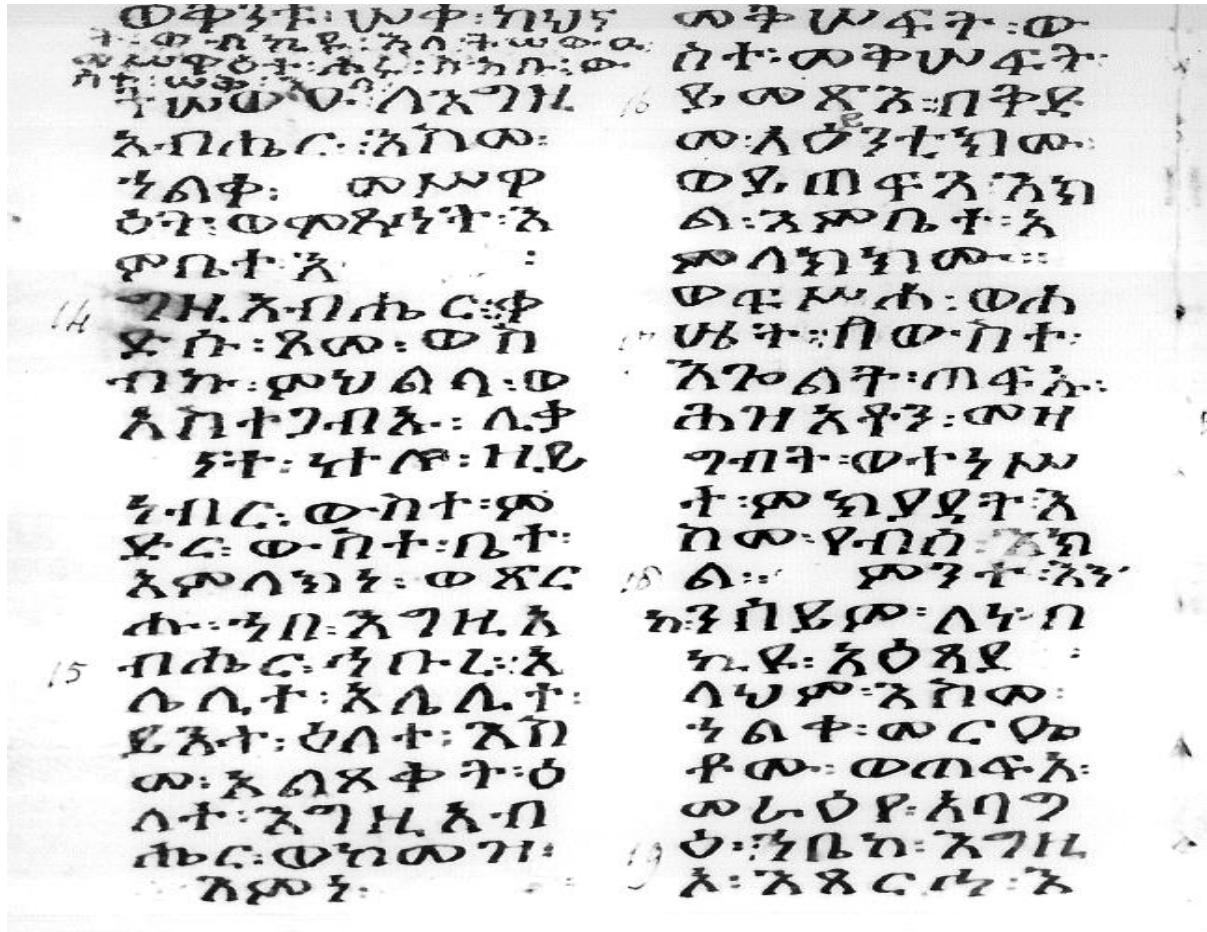 ወቅንቱ፡ሠቀ፡ካህና
ት፡ወብኪዩ፡እለ፡ትሠውዑ፡
መሥዋዕተ፡
ስተ፡ሠቅ፡
ትሠውዑ፡ለእግዚ
አብሔር፡እስመ፡
ኀልቀ፡ መሥዋ
ዕት፡ወሞጻሕት፡እ
ምቤተ፡እ ፡
14 ግዚአብሔር፡ቀ
ድሱ፡ጾመ፡ወስ
ብኩ፡ምህልላ፡ወ
አስተጋብኡ፡ሊቃ
ናተ፡ኵሎ፡ዘይ
ነብር፡ውስተ፡ም
ድር፡ውስተ፡ቤተ፡
አምላክነ፡ወጽር
ሑ፡ኀበ፡እግዚአ
15 ብሔር፡ኅቡረ፡አ
ሌሊተ፡አሌሊተ፡
ይእተ፡ዕለተ፡እስ
መ፡አልጸቀት፡ዕ
ለተ፡እግዚአብ
ሔር፡ወከመዝ፡
እምነ፡
መቅሠፍት፡ው
ስተ፡መቅሠፍት፡
16 ይመጽእ፡በቅድ
መ፡አዕይንቲክሙ፡
ወይጠፍእ፡እክ
ል፡እምቤተ፡አ
ምላክክሙ።
ወፍሥሓ፡ወሐ
17 ሤት፡በውስተ፡
እጐልት፡ጠፍኡ፡
ሕዝአቶን፡መዛ
ግብት፡ወተነሥ
ተ፡ምክያዳት፡እ
ስመ፡የብሰ፡እክ
18 ል። ምንተ፡እን
ከ፡ንሰይም፡ለነ፡በ
ኪዩ፡አዕጻደ ፡
ላህም፡እስመ፡
ኀልቀ፡መርዔ
ቶሙ፡ወጠፍአ፡
መራዕየ፡አባግ
19 ዕ፡ኀቤከ፡እግዚ
አ፡እጸርሕ፡እ